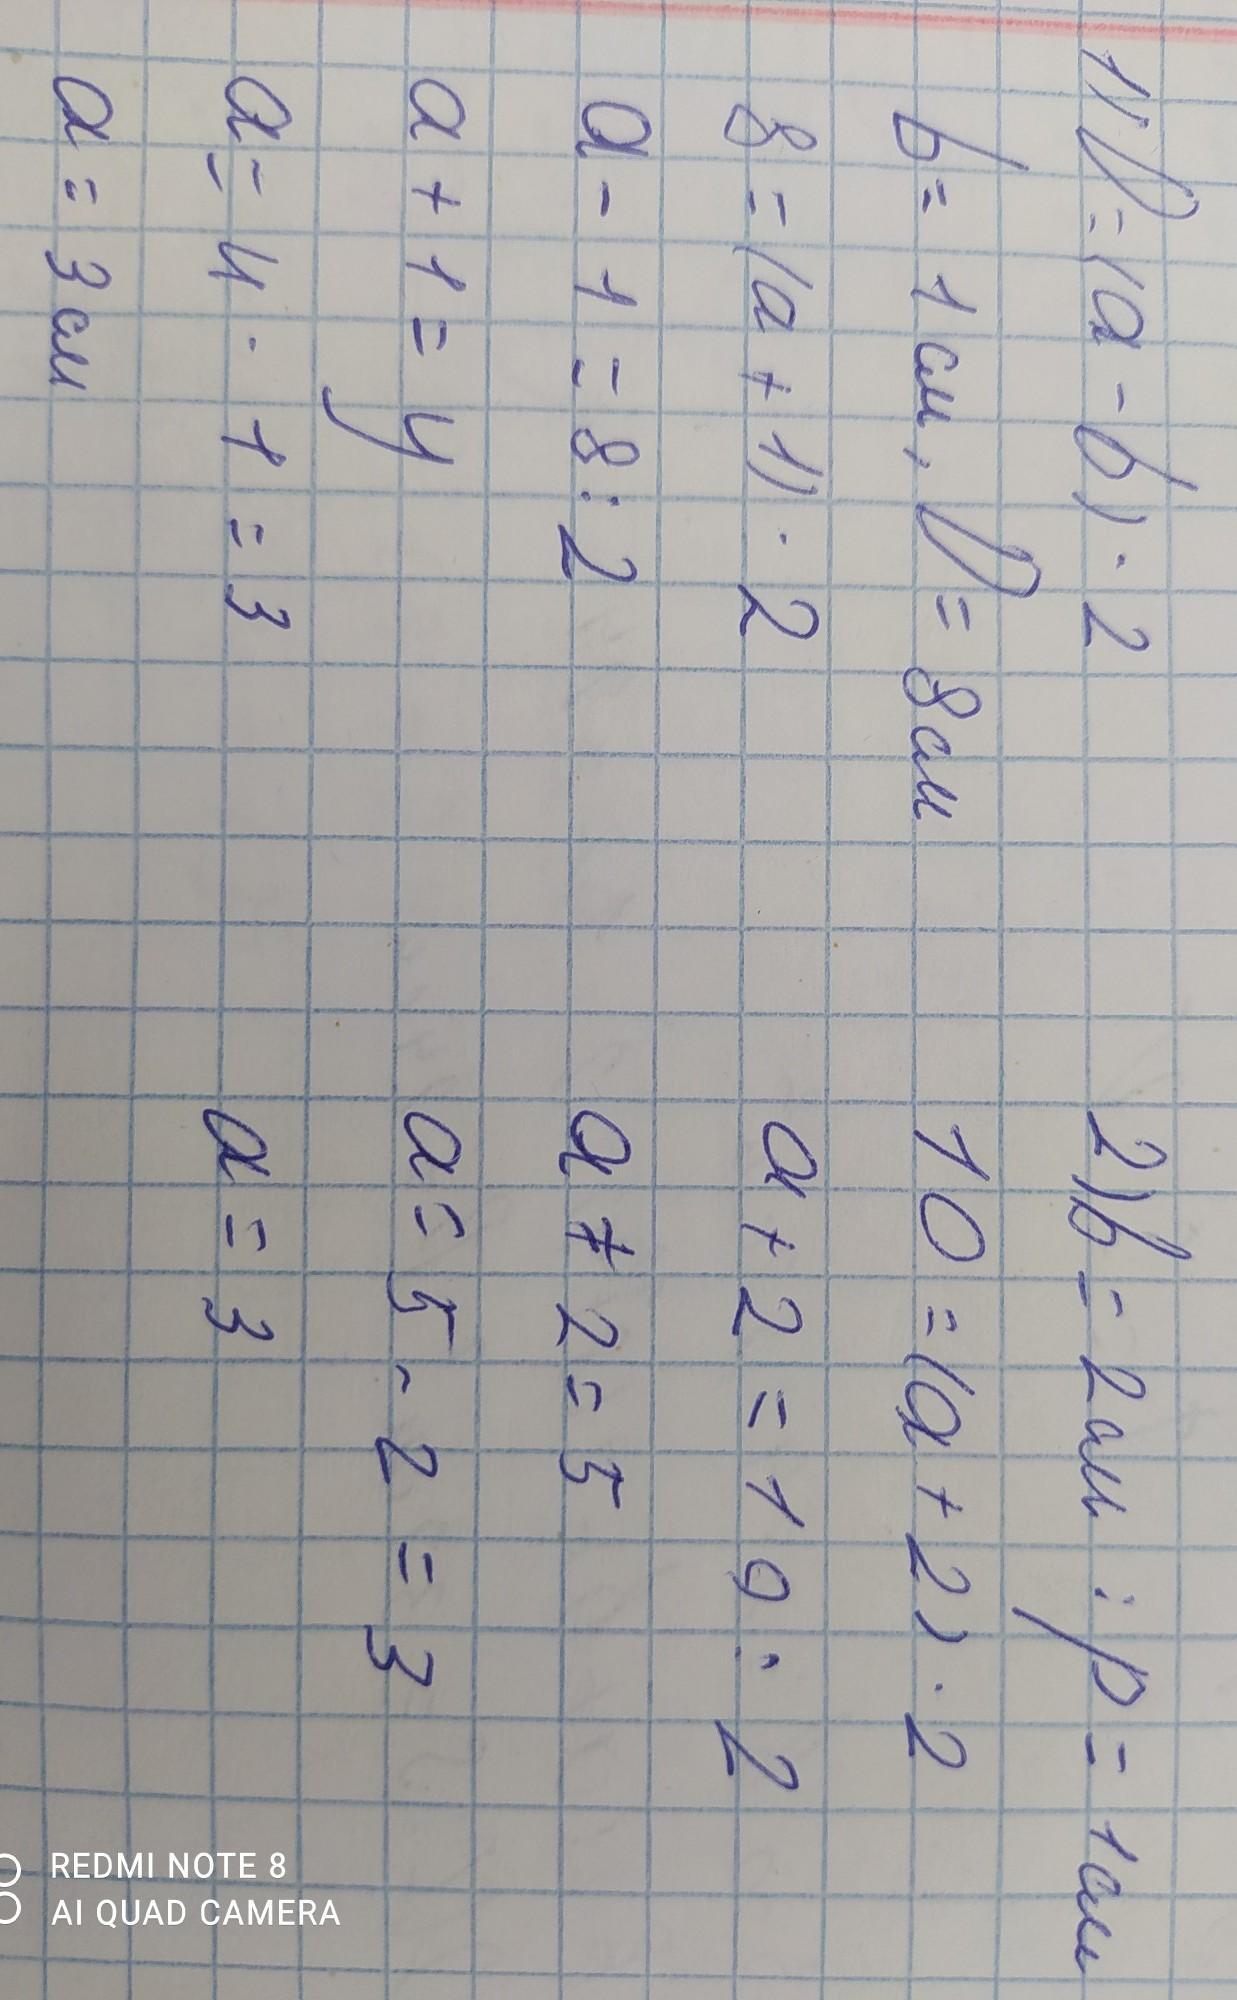 1) P = (a - b) · 2
b = 1 см, P = 8 см
8 = (a + 1) · 2
a - 1 = 8 : 2
a + 1 = 4
a = 4 · 1 = 3
a = 3 см
2) b = 2 см ; p = 1 см
10 = (a + 2) · 2
a + 2 = 10 : 2
a + 2 = 5
a = 5 - 2 = 3
a = 3
REDMI NOTE 8
AI QUAD CAMERA